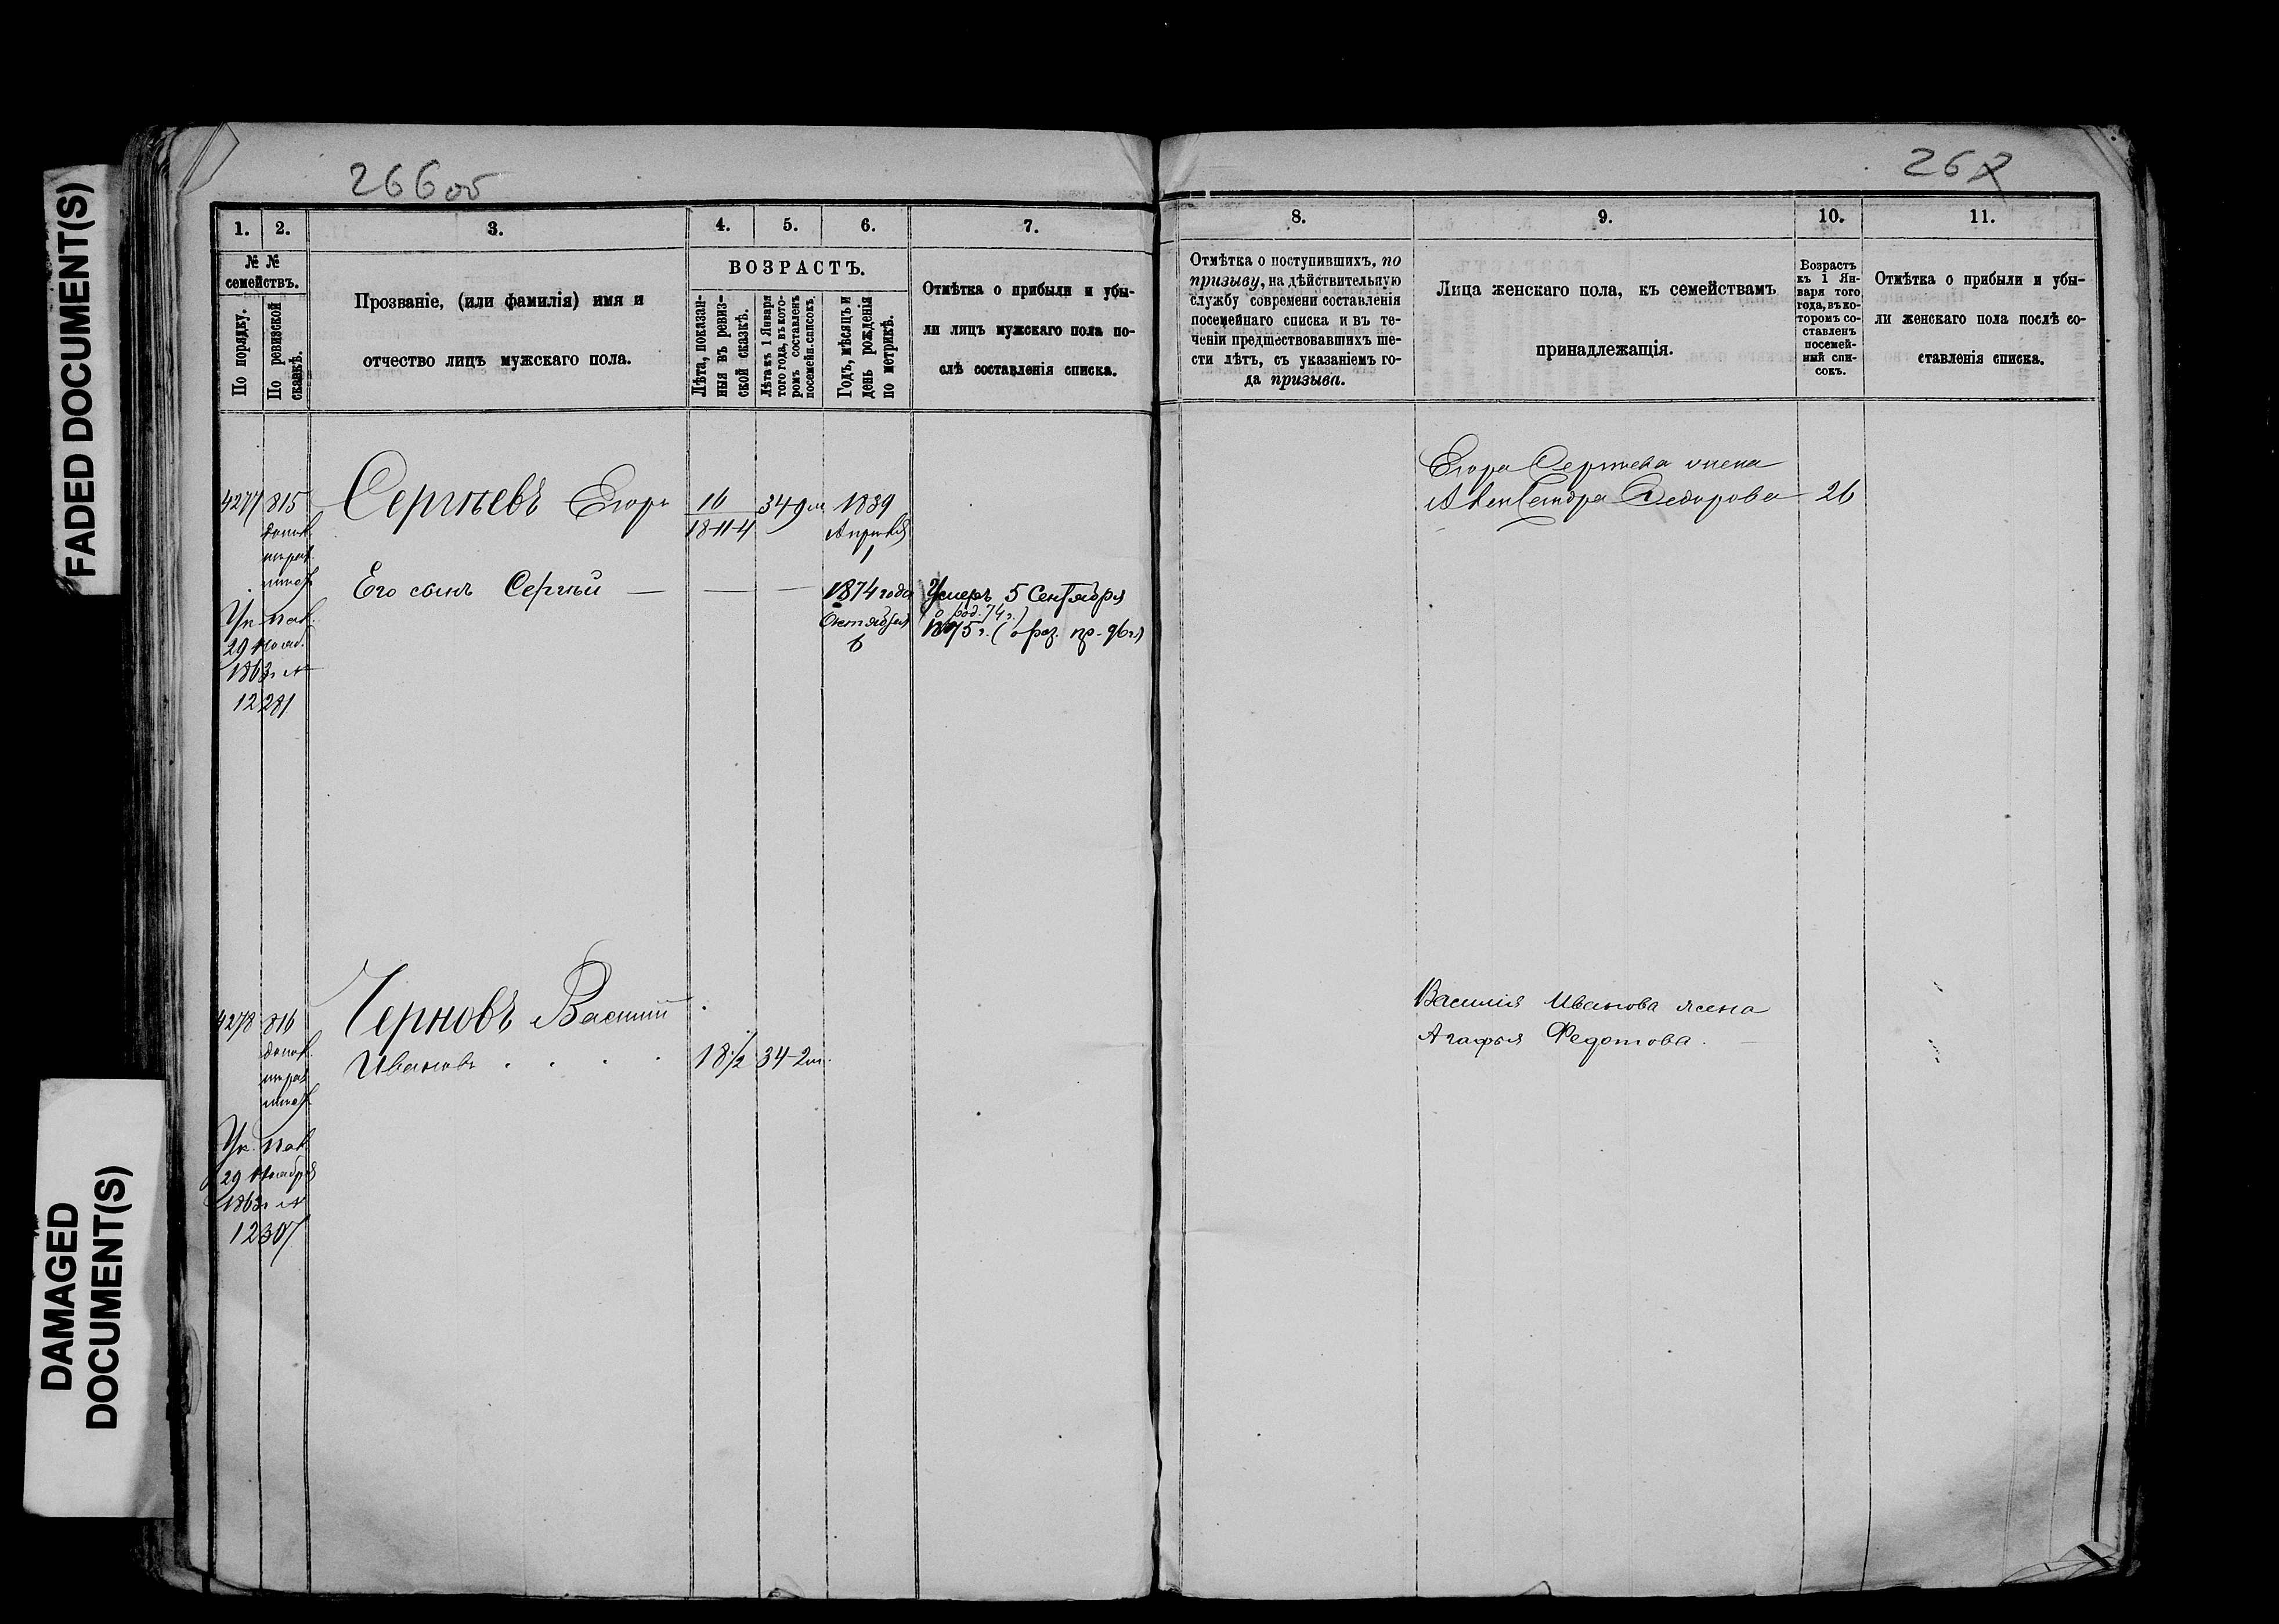 FADED DOCUMENT(S)
DAMAGED
DOCUMENT(S)
266об
1.
2.
3.
4.
5.
6.
7.
№ №
семействъ.
По порядку.
По ревизской
сказкѣ.
Прозваніе, (или фамилія) имя и
отчество лицъ мужскаго пола.
ВОЗРАСТЪ.
Лѣта, показан-
ныя въ ревиз-
ской сказкѣ.
Лѣта къ 1 Января
того года, въ кото-
ромъ составленъ
посемейн. списокъ.
Годъ, мѣсяцъ и
день рожденія
по метрикѣ.
Отмѣтка о прибыли и убы-
ли лицъ мужскаго пола по-
слѣ составленія списка.
4277
815
Сергѣевъ Егоръ
16
18-11-4
34-9м
1839
Апрѣля
1
Его сынъ Сергѣй —
—
—
1874 года
Октября
6
Умеръ 5 Сентября
(о род. 74 г.)
1875 г. (о раз. пр-96 г.)
29 Нояб.
1863г №
12281
4278
816
Черновъ Василій
Ивановъ . . . .
18 1/2
34-2м.
29 Ноября
1863г №
12307
267
8.
9.
10.
11.
Отмѣтка о поступившихъ, по
призыву, на дѣйствительную
службу современи составленія
посемейнаго списка и въ те-
ченіи предшествовавшихъ ше-
сти лѣтъ, съ указаніемъ го-
да призыва.
Лица женскаго пола, къ семействамъ
принадлежащія.
Возрастъ
къ 1 Ян-
варя того
года, въ ко-
торомъ со-
ставленъ
посемей-
ный спи-
сокъ.
Отмѣтка о прибыли и убы-
ли женскаго пола послѣ со-
ставленія списка.
Егора Сергѣева жена
Александра Федорова
26
Василія Иванова жена
Агафья Федотова. —